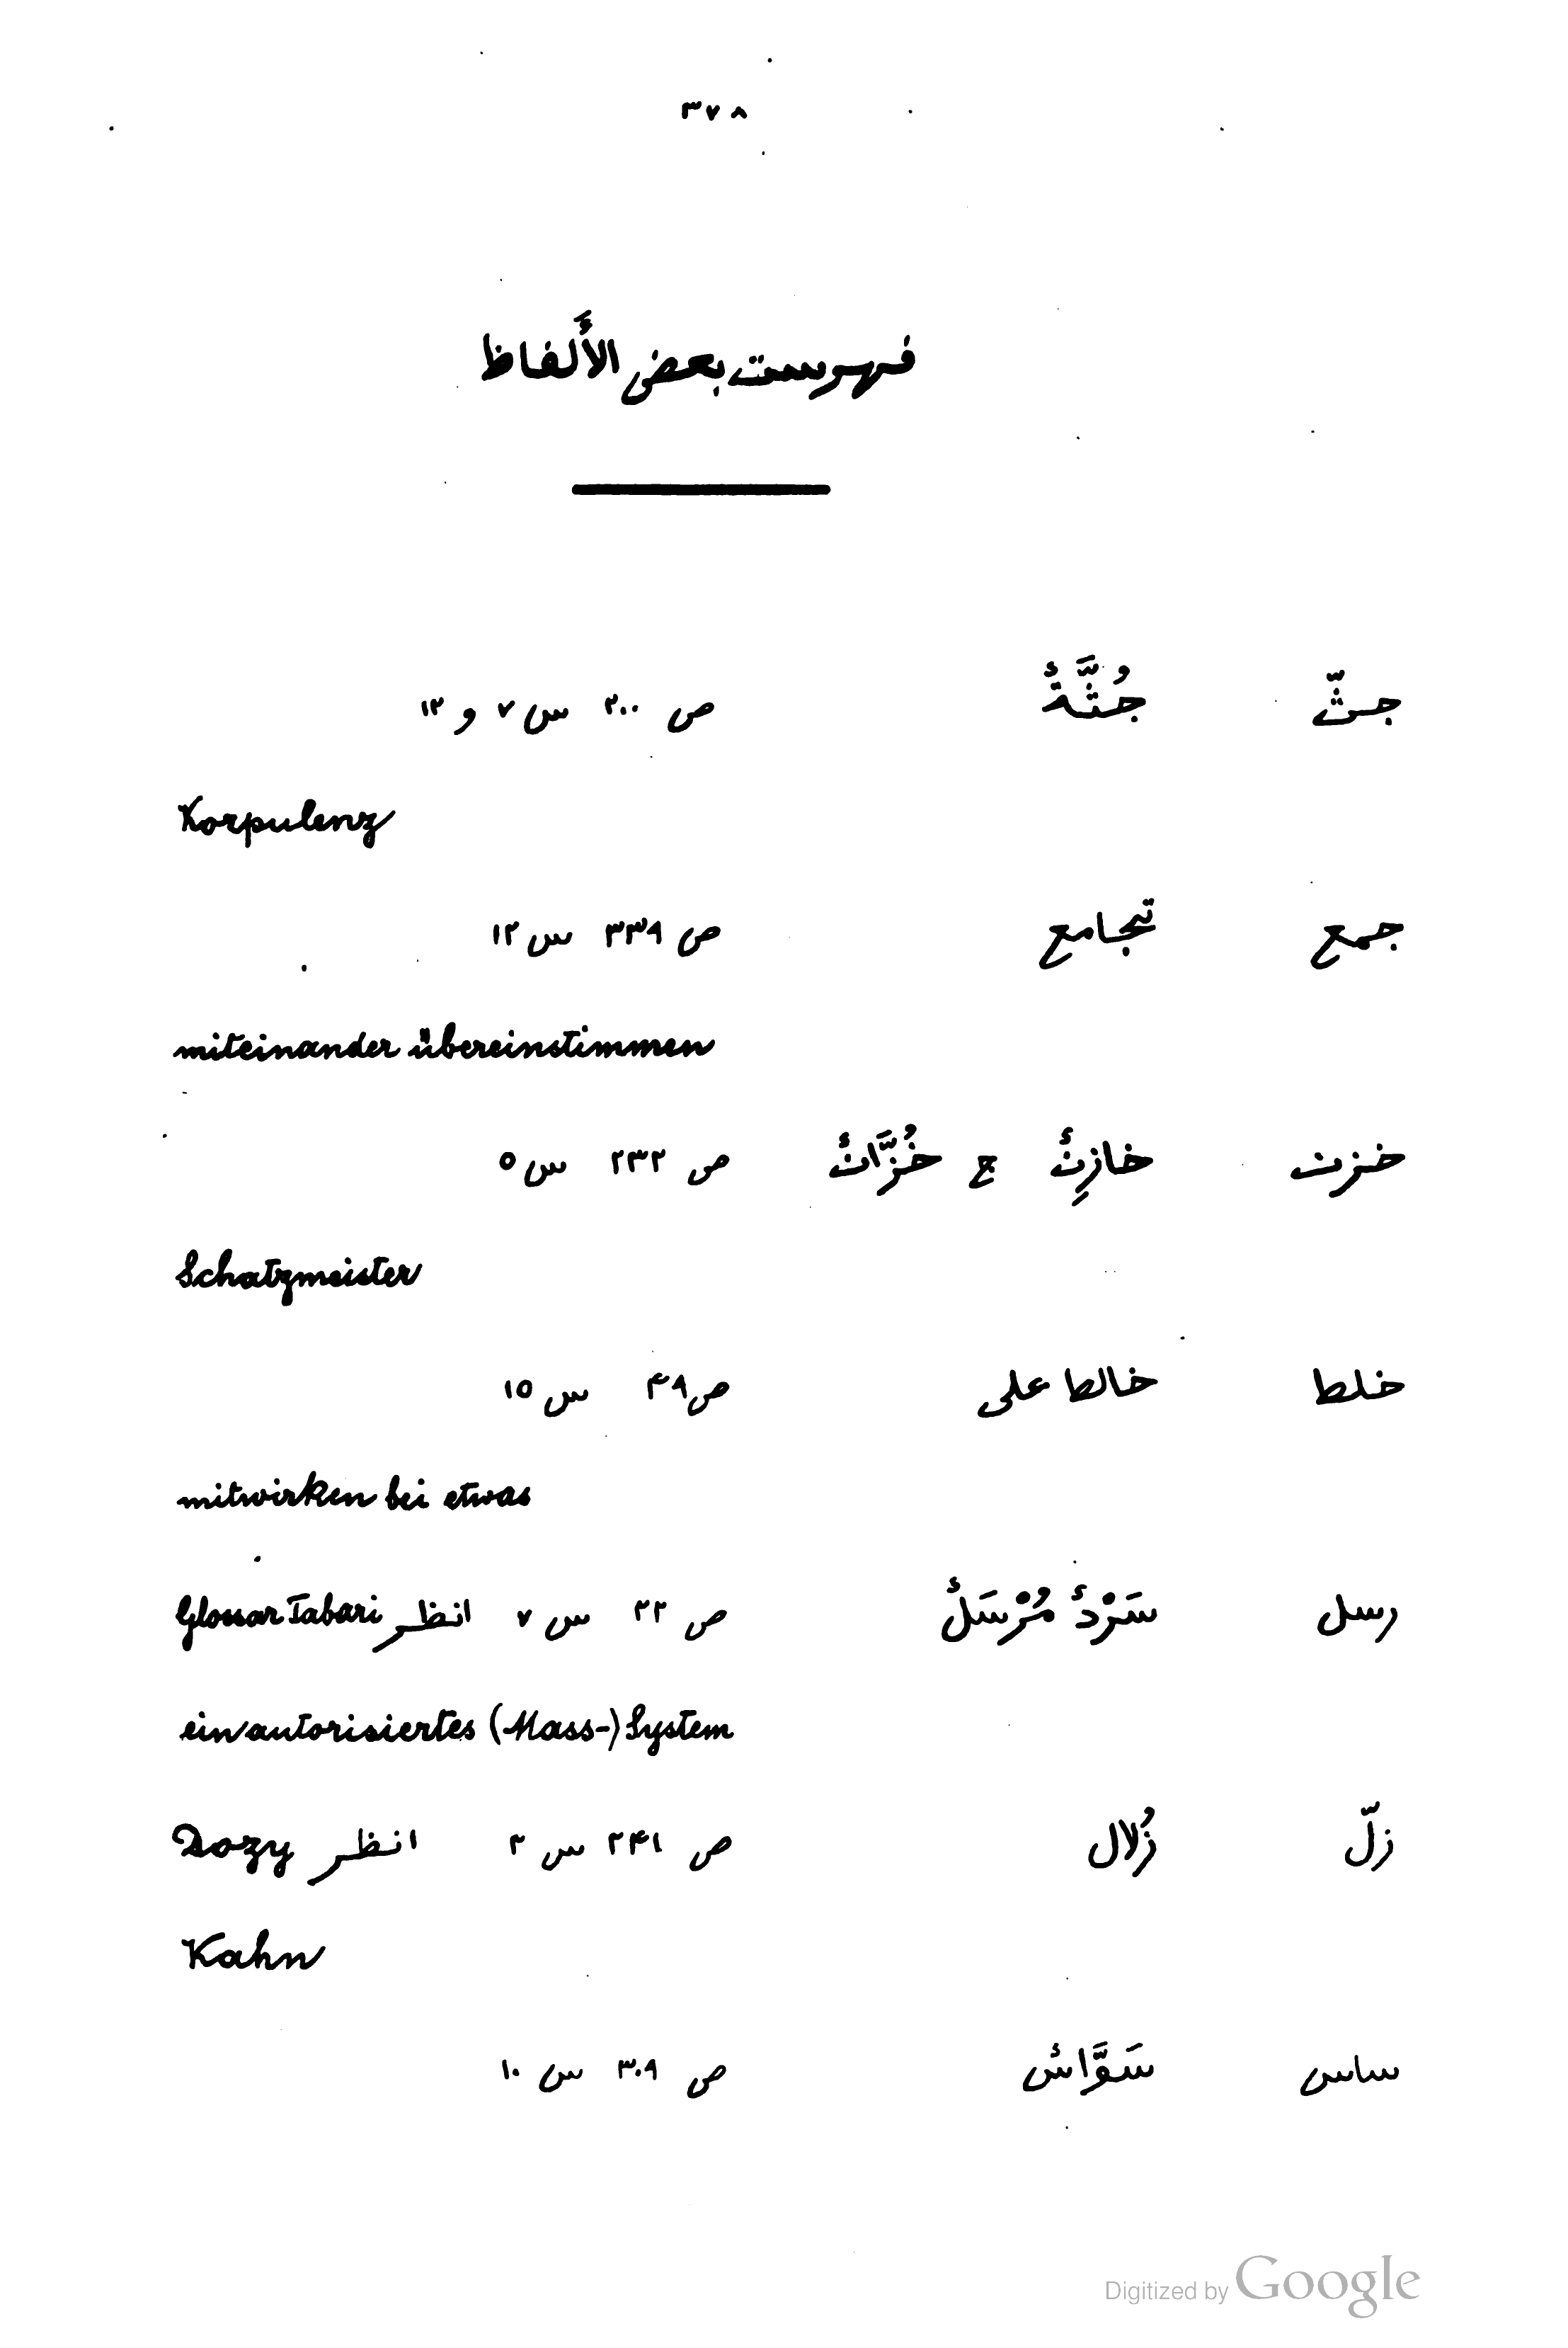 ٣٧٨
فهرست بعض الأَلفاظ
جثّ جُثَّةٌ ص ٢٠٠ س ٧ و ١٢
Korpulenz
جمع تجامع ص ٣٣٩ س ١٢
miteinander übereinstimmen
خزن خازِنٌ ج خُزَّانٌ ص ٢٣٢ س ٥
Schatzmeister
خلط خالط على ص ٤٩ س ١٥
mitwirken bei etwas
رسل سَرْدٌ مُرْسَلٌ ص ٢٢ س ٧ انظر Glossar Tabari
ein autorisiertes (Mass-) System
زلّ زُلال ص ٢٤١ س ٢ انظر Dozy
Kahn
ساس سَوَّاسٌ ص ٣٠٩ س ١٠
Digitized by Google